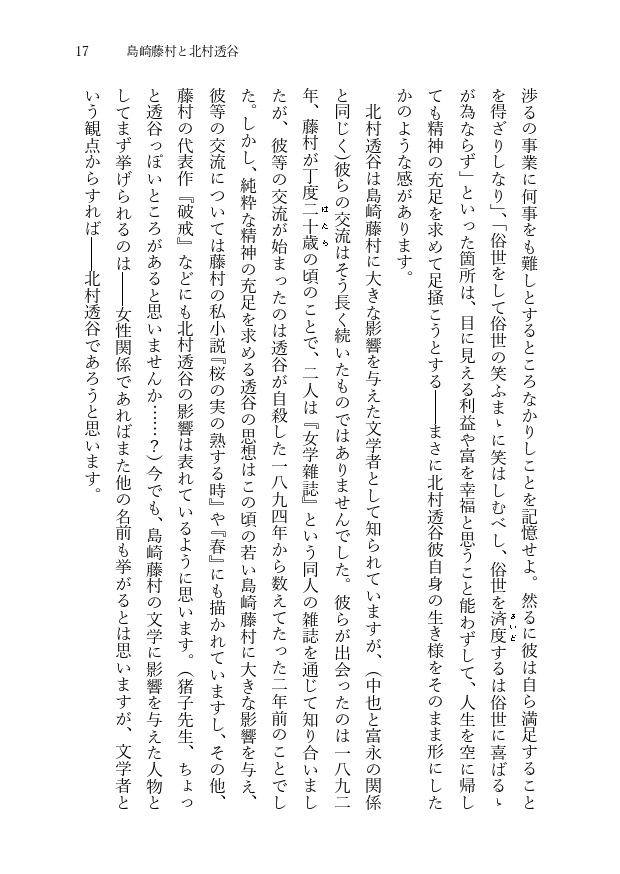 17　島崎藤村と北村透谷
渉るの事業に何事をも難しとするところなかりしことを記憶せよ。然るに彼は自ら満足すること
を得ざりしなり」、「俗世をして俗世の笑ふまゝに笑はしむべし、俗世を済度するは俗世に喜ばるゝ
さいど
が為ならず」といった箇所は、目に見える利益や富を幸福と思うこと能わずして、人生を空に帰し
ても精神の充足を求めて足掻こうとする――まさに北村透谷彼自身の生き様をそのまま形にした
かのような感があります。
　北村透谷は島崎藤村に大きな影響を与えた文学者として知られていますが、（中也と富永の関係
と同じく）彼らの交流はそう長く続いたものではありませんでした。彼らが出会ったのは一八九二
年、藤村が丁度二十歳の頃のことで、二人は『女学雑誌』という同人の雑誌を通じて知り合いまし
はたち
たが、彼等の交流が始まったのは透谷が自殺した一八九四年から数えてたった二年前のことでし
た。しかし、純粋な精神の充足を求める透谷の思想はこの頃の若い島崎藤村に大きな影響を与え、
彼等の交流については藤村の私小説『桜の実の熟する時』や『春』にも描かれていますし、その他、
藤村の代表作『破戒』などにも北村透谷の影響は表れているように思います。（猪子先生、ちょっ
と透谷っぽいところがあると思いませんか……？）今でも、島崎藤村の文学に影響を与えた人物と
してまず挙げられるのは――女性関係であればまた他の名前も挙がるとは思いますが、文学者と
いう観点からすれば――北村透谷であろうと思います。